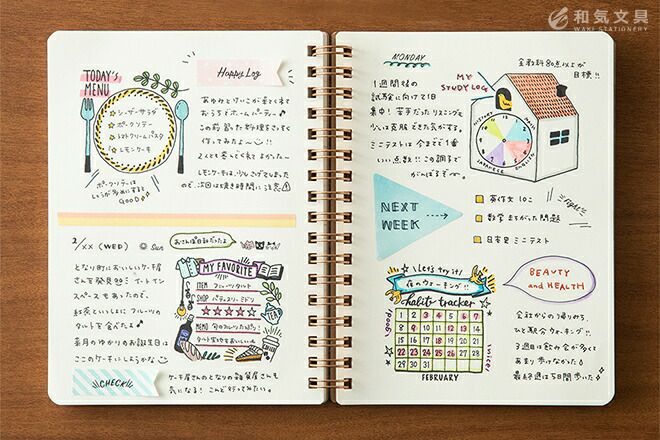 和気文具
WAKI STATIONERY
TODAY'S
MENU
シーザーサラダ
ポークソテー
トマトクリームパスタ
レモンケーキ
ポークソテーは
しょうが多めにすると
GOOD
Happy Log
あゆみとりこが家に来て
おうちでホームパーティー♪
この前習った料理をさっそく
作ってみたよ〜!!
2人とも喜んでくれてよかった〜
レモンケーキは、少しこげちゃった
ので、次回は焼き時間に注意
2/×× (WED)
Sun
おさんぽ日和だったよ
となり町においしいケーキ屋
さんを発見!! イートイン
スペースもあったので、
紅茶といっしょに フルーツの
タルトを食べたよ♪
来月のゆかりのお誕生日は
ここのケーキにしようかな
MY FAVORITE
ITEM フルーツタルト
SHOP パティスリーミドリ
★★★★★
MEMO 旬のフルーツたっぷり!
TEA
CHECK
ケーキ屋さんのとなりの雑貨屋さんも
気になる! こんど行ってみたい。
MONDAY
全教科80点以上が
目標!!
1週間後の
試験に向けて1日
集中! 苦手だったリスニングも
少しは克服できた気がする。
ミニテストは 今までで1番
いい点数!! この調子で
がんばるぞ〜
MY
STUDY LOG
HISTORY
MATH
JAPANESE
ENGLISH
NEXT
WEEK
英作文 10こ
数学 まちがった問題
日本史 ミニテスト
Fight!!
Let's try it!
夜のウォーキング!!
hality tracker
1 2 3 4 5 6 7
8 9 10 11 12 13 14
15 16 17 18 19 20 21
22 23 24 25 26 27 28
29 30 31
FEBRUARY
good!
nice!
BEAUTY
and HEALTH
会社からの帰りみち、
ひと駅分ウォーキング!!
3週は飲み会が多くて
あまり歩けなかった
最終週は5日間歩いた